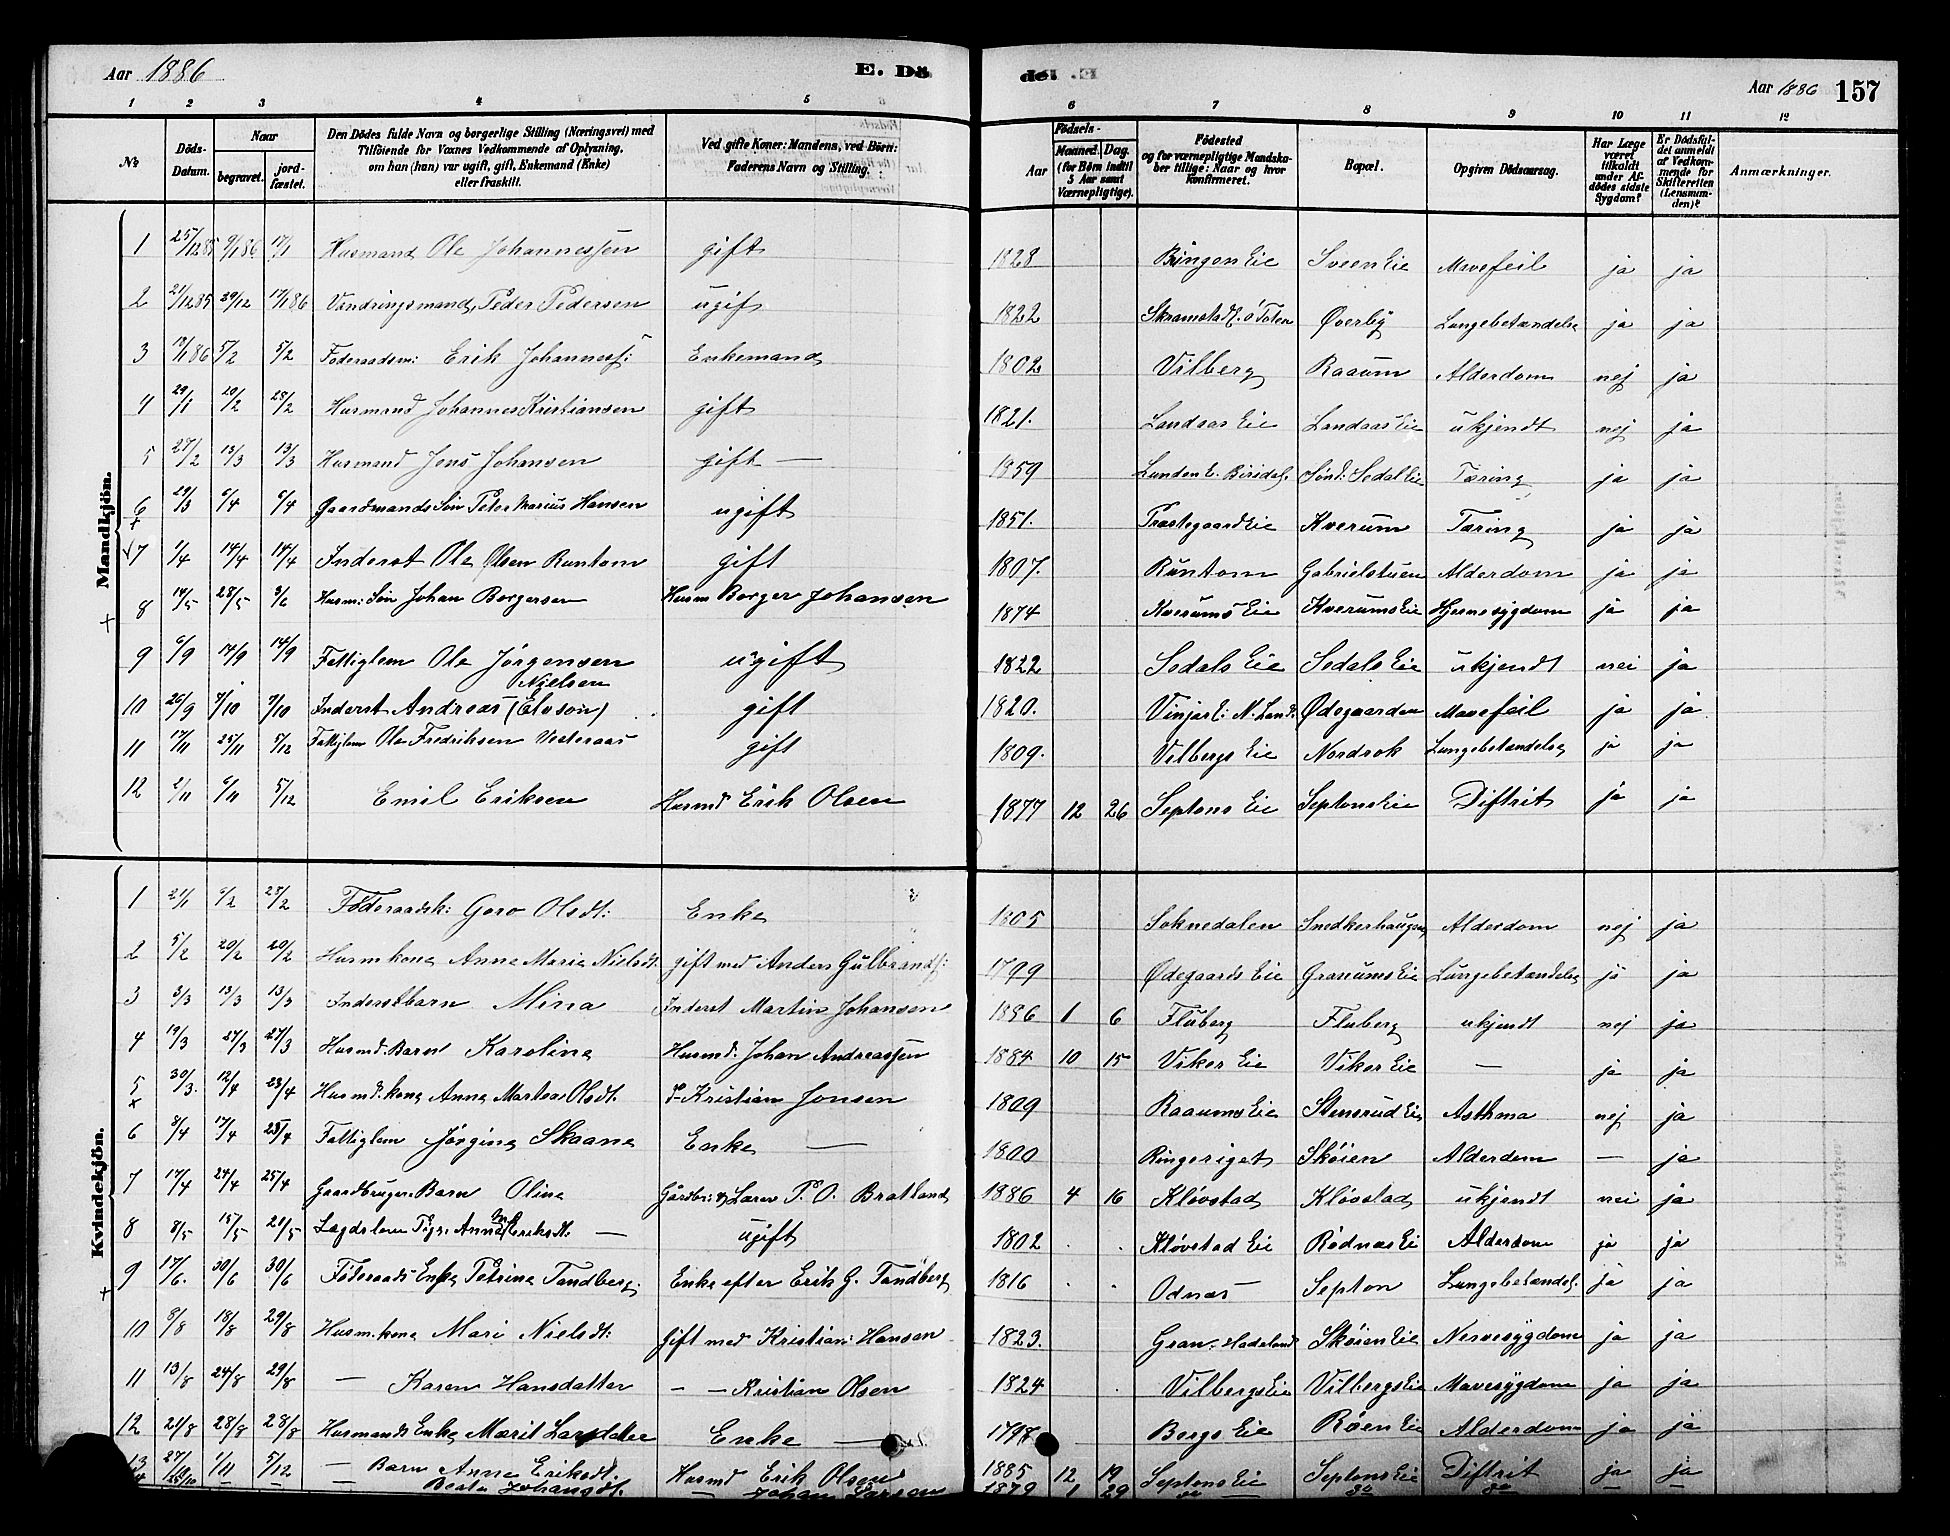 Aar 1886
E. Dö
1 2 3 4 5
№
Döds-Datum.
Naar
begravet.
jord-fæstet.
Den Dödes fulde Navn og borgerlige Stilling (Næringsvei) med
Tilföiende for Voxnes Vedkommende af Oplysning,
om han (hun) var ugift, gift, Enkemand (Enke)
eller fraskilt.
Ved gifte Koner: Mandens, ved Börn:
Faderens Navn og Stilling.
de.
Aar 1886 157
6 7 8 9 10 11 12
Födsels-
Aar
Maaned. Dag.
(for Börn indtil
5 Aar samt
Værnepligtige).
Födested
og for værnepligtige Mandska-
ber tillige: Naar og hvor
konfirmeret.
Bopæl.
Opgiven Dödsaarsag.
Har Læge
været
tilkaldt
under Af-
dödes sidste
Sygdom?
Er Dödsfal-
det anmeldt
af Vedkom-
mende for
Skifteretten
(Lensman-
den)?
Anmærkninger.
Mandkjön.
1 25/12 85 9/1 86 17/1 Husmand Ole Johannessen gift 1828 Bringen Eie Sveen Eie Mavefeil ja ja
2 21/12 85 29/12 17/1 86 Vandringsmand, Peder Pedersen ugif 1822 Skramstad E. ø Toten Øverby Lungebetændelse ja ja
3 13/1 86 5/2 5/2 Føderaadsm: Erik Johanness: Enkemand 1802 Vilberg Raaum Alderdom nej ja
4 29/1 20/2 28/2 Husmand Johannes Kristiansen gift 1821. Landaas Eie Landaas Eie ukjendt nej ja
5 27/2 13/3 13/3 Husmand Jens Johansen gift — 1859 Lunden E. Birids. Sønd: Sedal Eie Tæring ja ja
6 29/3 6/4 6/4 Gaardmands Søn Peter Marius Hansen ugift 1851. Præstegaard Eie Kverum Tæring ja ja
7 1/4 14/4 14/4 Inderst Ole Olsen Runtom gift 1807. Runtom Gabrielstuen Alderdom ja ja
8 14/5 28/5 3/6 Husm: Søn Johan Borgersen Husm Borger Johansen 1874 Kverums Eie Kverums Eie Hjernesygdom ja ja
9 6/9 14/9 14/9 Fattiglem Ole Jørgensen ugift 1822 Sedals Eie Sedals Eie ukjendt nei ja
Nielsen
10 26/9 7/10 7/10 Inderst Andreas (Elvson) gift 1820. Vinjar E: N. Land. Ødegaarden Mavefeil ja ja
11 17/11 25/11 5/12 Fattiglem Ole Fredriksen Vesteraas gift 1809. Vilbergs Eie Nordrok Lungebetændelse ja ja
12 2/11 6/11 5/12 Emil Eriksen Husmd Erik Olsen 1877 12 26 Septons Eie Septons Eie Diftrit ja ja
Kvindekjön.
1 21/1 6/2 28/2 Føderaadsk: Goro Olsdt: Enke 1805 Soknedalen Snedkerhaugen Alderdom nej ja
2 5/2 20/2 20/2 Husmkone Anne Marie Nielsdt. gift med Anders Gulbrands: 1799 Ødegaards Eie Granums Eie Lungebetændelse ja ja
3 3/3 13/3 13/3 Inderstbarn Mina Inderst Martin Johansen 1886 1 6 Fluberg Fluberg ukjendt nej ja
4 19/3 27/3 27/3 Husmd. Barn Karoline Husmd. Johan Andreassen 1884 10 15 Viker Eie Viker Eie — ja ja
5 30/3. 12/4 23/4 Husmd. kone Anne Marthea Olsdt. d- Kristian Jonsen 1809 Raaums Eie Stensrud Eie Asthma nej ja
6 8/4 17/4 25/4 Fattiglem Jørgine Skaane Enke — 1800 Ringeriget Skøien Alderdom — ja
7 17/4 24/4 25/4 Gaardbruger Barn Oline Gårdbr: og Lærer P. O. Bratland 1886 4 16 Kløvstad Kløvstad ukjendt nei ja
8 8/5 15/5 21/5 Lægdslem Pige: Anne Eriksdt. — ugift 1802 Kløvstad Eie Rødnæs Ei Alderdom ja ja
9 17/6. 30/6 30/6 Føderaads Enke Petrine Tandberg. Enke efter Erik G. Tandberg 1816 Odnæs — Septon Lungebetændel. ja ja
10 8/8 18/8 29/8 Husm. kone Mari Nielsdt: Gift med Kristian Hansen 1823. Gran. Hadeland Skøien Eie Nervesygdom ja ja
11 13/8 24/8 29/8 — Karen Hansdatter — — Kristian Olsen 1824 Vilbergs Eie Vilbergs Eie Mavesygdom ja ja
12 21/8 28/8 28/8 Husmands Enke Marit Larsdatter Enke — 1798 Bergs Eie Røen Eie Alderdom ja ja
13 27/10 1/11 5/12 — Barn Anne Eriksdt. Husmd Erik Olsen 1885 12 19 Septons Eie Septons Eie Diftrit ja ja
— Beate Johansdt. — Johan Larsen 1879 1 29 do — do do — —